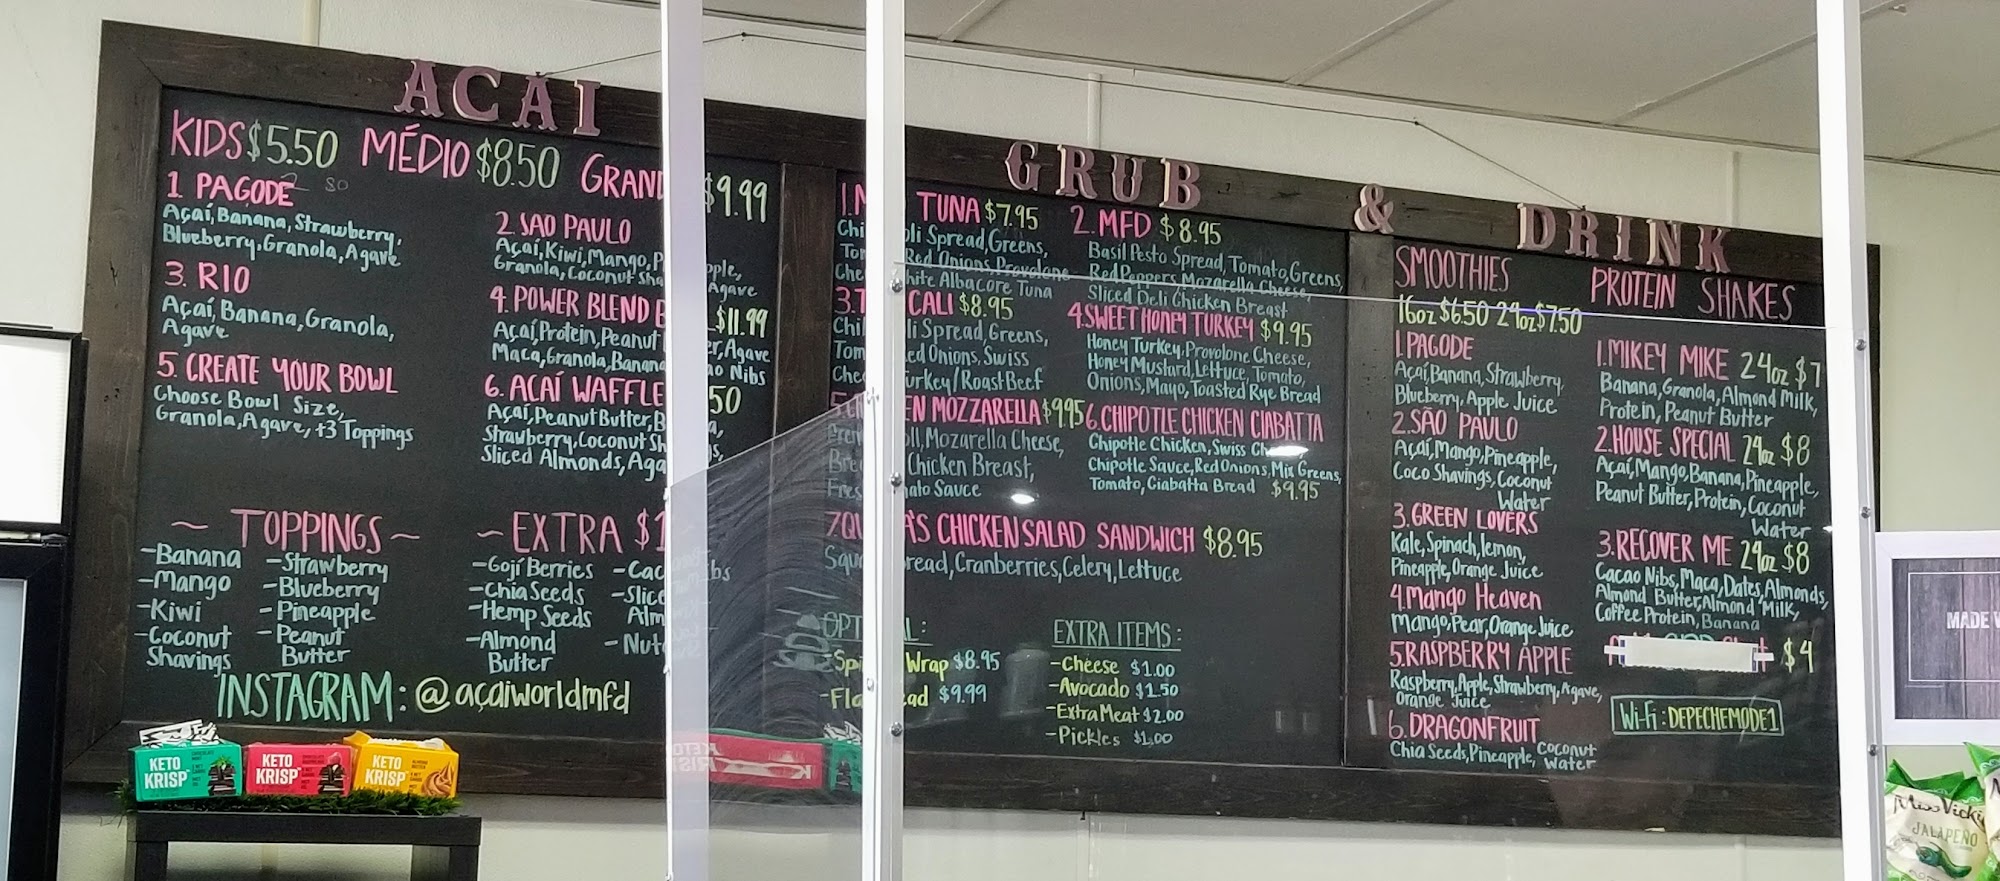 AÇAI
KIDS $5.50 MÉDIO $8.50 GRAN $9.99
1 PAGODE
Açaí, Banana, Strawberry,
Blueberry, Granola, Agave
2. SAO PAULO
Açaí, Kiwi, Mango,
Granola, Coconut Agave
3. RIO
Açaí, Banana, Granola,
Agave
4. POWER BLEND $11.99
Açaí, Protein, Peanut Agave
Maca, Granola, Banana Nibs
5. CREATE YOUR BOWL
Choose Bowl Size,
Granola, Agave, +3 Toppings
6. AÇAÍ WAFFLE 50
Açaí, Peanut Butter,
Strawberry, Coconut
Sliced Almonds,
~ TOPPINGS ~
-Banana
-Mango
-Kiwi
-Coconut
Shavings
-Strawberry
-Blueberry
-Pineapple
-Peanut
Butter
~ EXTRA $1
-Goji Berries
-Chia Seeds
-Hemp Seeds
-Almond
Butter
INSTAGRAM: @açaiworldmfd
GRUB & DRINK
1. TUNA $7.95
Spread, Greens,
Red Onions, Provolone
Albacore Tuna
2. MFD $8.95
Basil Pesto Spread, Tomato, Greens,
Red Peppers, Mozzarella Cheese,
Sliced Deli Chicken Breast
3. CALI $8.95
Spread, Greens,
Onions, Swiss
Turkey/Roast Beef
4. SWEET HONEY TURKEY $9.95
Honey Turkey, Provolone Cheese,
Honey Mustard, Lettuce, Tomato,
Onions, Mayo, Toasted Rye Bread
MOZZARELLA $9.95
Mozarella Cheese,
Chicken Breast,
Sauce
6. CHIPOTLE CHICKEN CIABATTA
Chipotle Chicken, Swiss
Chipotle Sauce, Red Onions, Mix Greens,
Tomato, Ciabatta Bread $9.95
7. CHICKEN SALAD SANDWICH $8.95
Cranberries, Celery, Lettuce
Wrap $8.95
$9.99
EXTRA ITEMS:
-Cheese $1.00
-Avocado $1.50
-Extra Meat $2.00
-Pickles $1.00
SMOOTHIES
16oz $6.50 24oz $7.50
1. PAGODE
Açaí, Banana, Strawberry,
Blueberry, Apple Juice
2. SÃO PAULO
Açaí, Mango, Pineapple,
Coco Shavings, Coconut
Water
3. GREEN LOVERS
Kale, Spinach, lemon,
Pineapple, Orange Juice
4. Mango Heaven
Mango, Pear, Orange Juice
5. RASPBERRY APPLE
Raspberry, Apple, Strawberry, Agave,
Orange Juice
6. DRAGONFRUIT
Chia Seeds, Pineapple, Coconut
Water
PROTEIN SHAKES
1. MIKEY MIKE 24oz $7
Banana, Granola, Almond Milk,
Protein, Peanut Butter
2. HOUSE SPECIAL 24oz $8
Açaí, Mango, Banana, Pineapple,
Peanut Butter, Protein, Coconut
Water
3. RECOVER ME 24oz $8
Cacao Nibs, Maca, Dates, Almonds,
Almond Butter, Almond Milk,
Coffee Protein, Banana
$4
Wi-Fi: DEPECHEMODE1
KETO
KRISP
KETO
KRISP
KETO
KRISP
MADE
Miss Vicki
JALAPEÑO